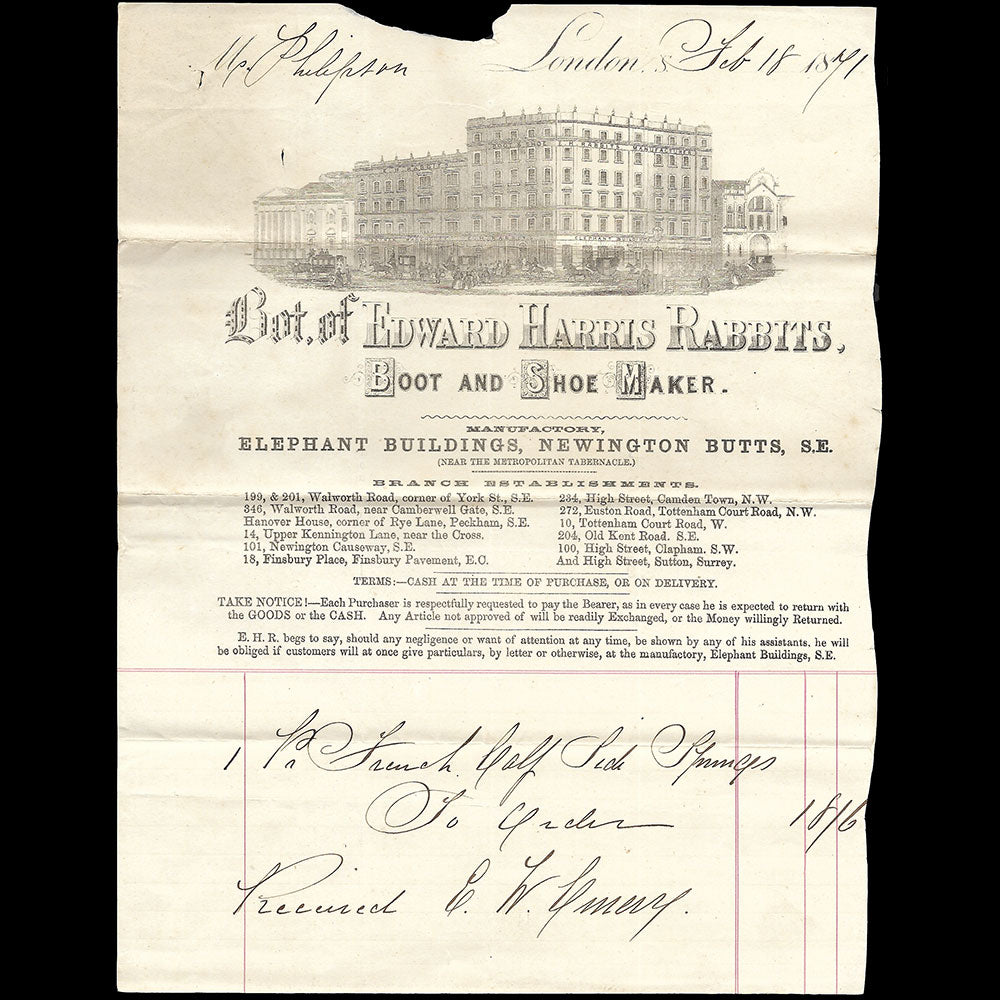 Mr. Philipson London, S Feb 18 1871
BOOT & SHOE E. H. RABBITS MANUFACTURER
E. H. RABBITS
ELEPHANT BUILDINGS
Bot. of EDWARD HARRIS RABBITS,
BOOT AND SHOE MAKER.
MANUFACTORY,
ELEPHANT BUILDINGS, NEWINGTON BUTTS, S.E.
(NEAR THE METROPOLITAN TABERNACLE.)
BRANCH ESTABLISHMENTS.
199, & 201, Walworth Road, corner of York St., S.E.
346, Walworth Road, near Camberwell Gate, S.E.
Hanover House, corner of Rye Lane, Peckham, S.E.
14, Upper Kennington Lane, near the Cross.
101, Newington Causeway, S.E.
18, Finsbury Place, Finsbury Pavement, E.C.
234, High Street, Camden Town, N.W.
272, Euston Road, Tottenham Court Road, N.W.
10, Tottenham Court Road, W.
204, Old Kent Road. S.E.
100, High Street, Clapham. S.W.
And High Street, Sutton, Surrey.
TERMS:—CASH AT THE TIME OF PURCHASE, OR ON DELIVERY.
TAKE NOTICE!—Each Purchaser is respectfully requested to pay the Bearer, as in every case he is expected to return with
the GOODS or the CASH. Any Article not approved of will be readily Exchanged, or the Money willingly Returned.
E. H. R. begs to say, should any negligence or want of attention at any time, be shown by any of his assistants. he will
be obliged if customers will at once give particulars, by letter or otherwise, at the manufactory, Elephant Buildings, S.E.
1 Pr French Calf Side Springs
To Order 18/6
Received E. W. Emery.